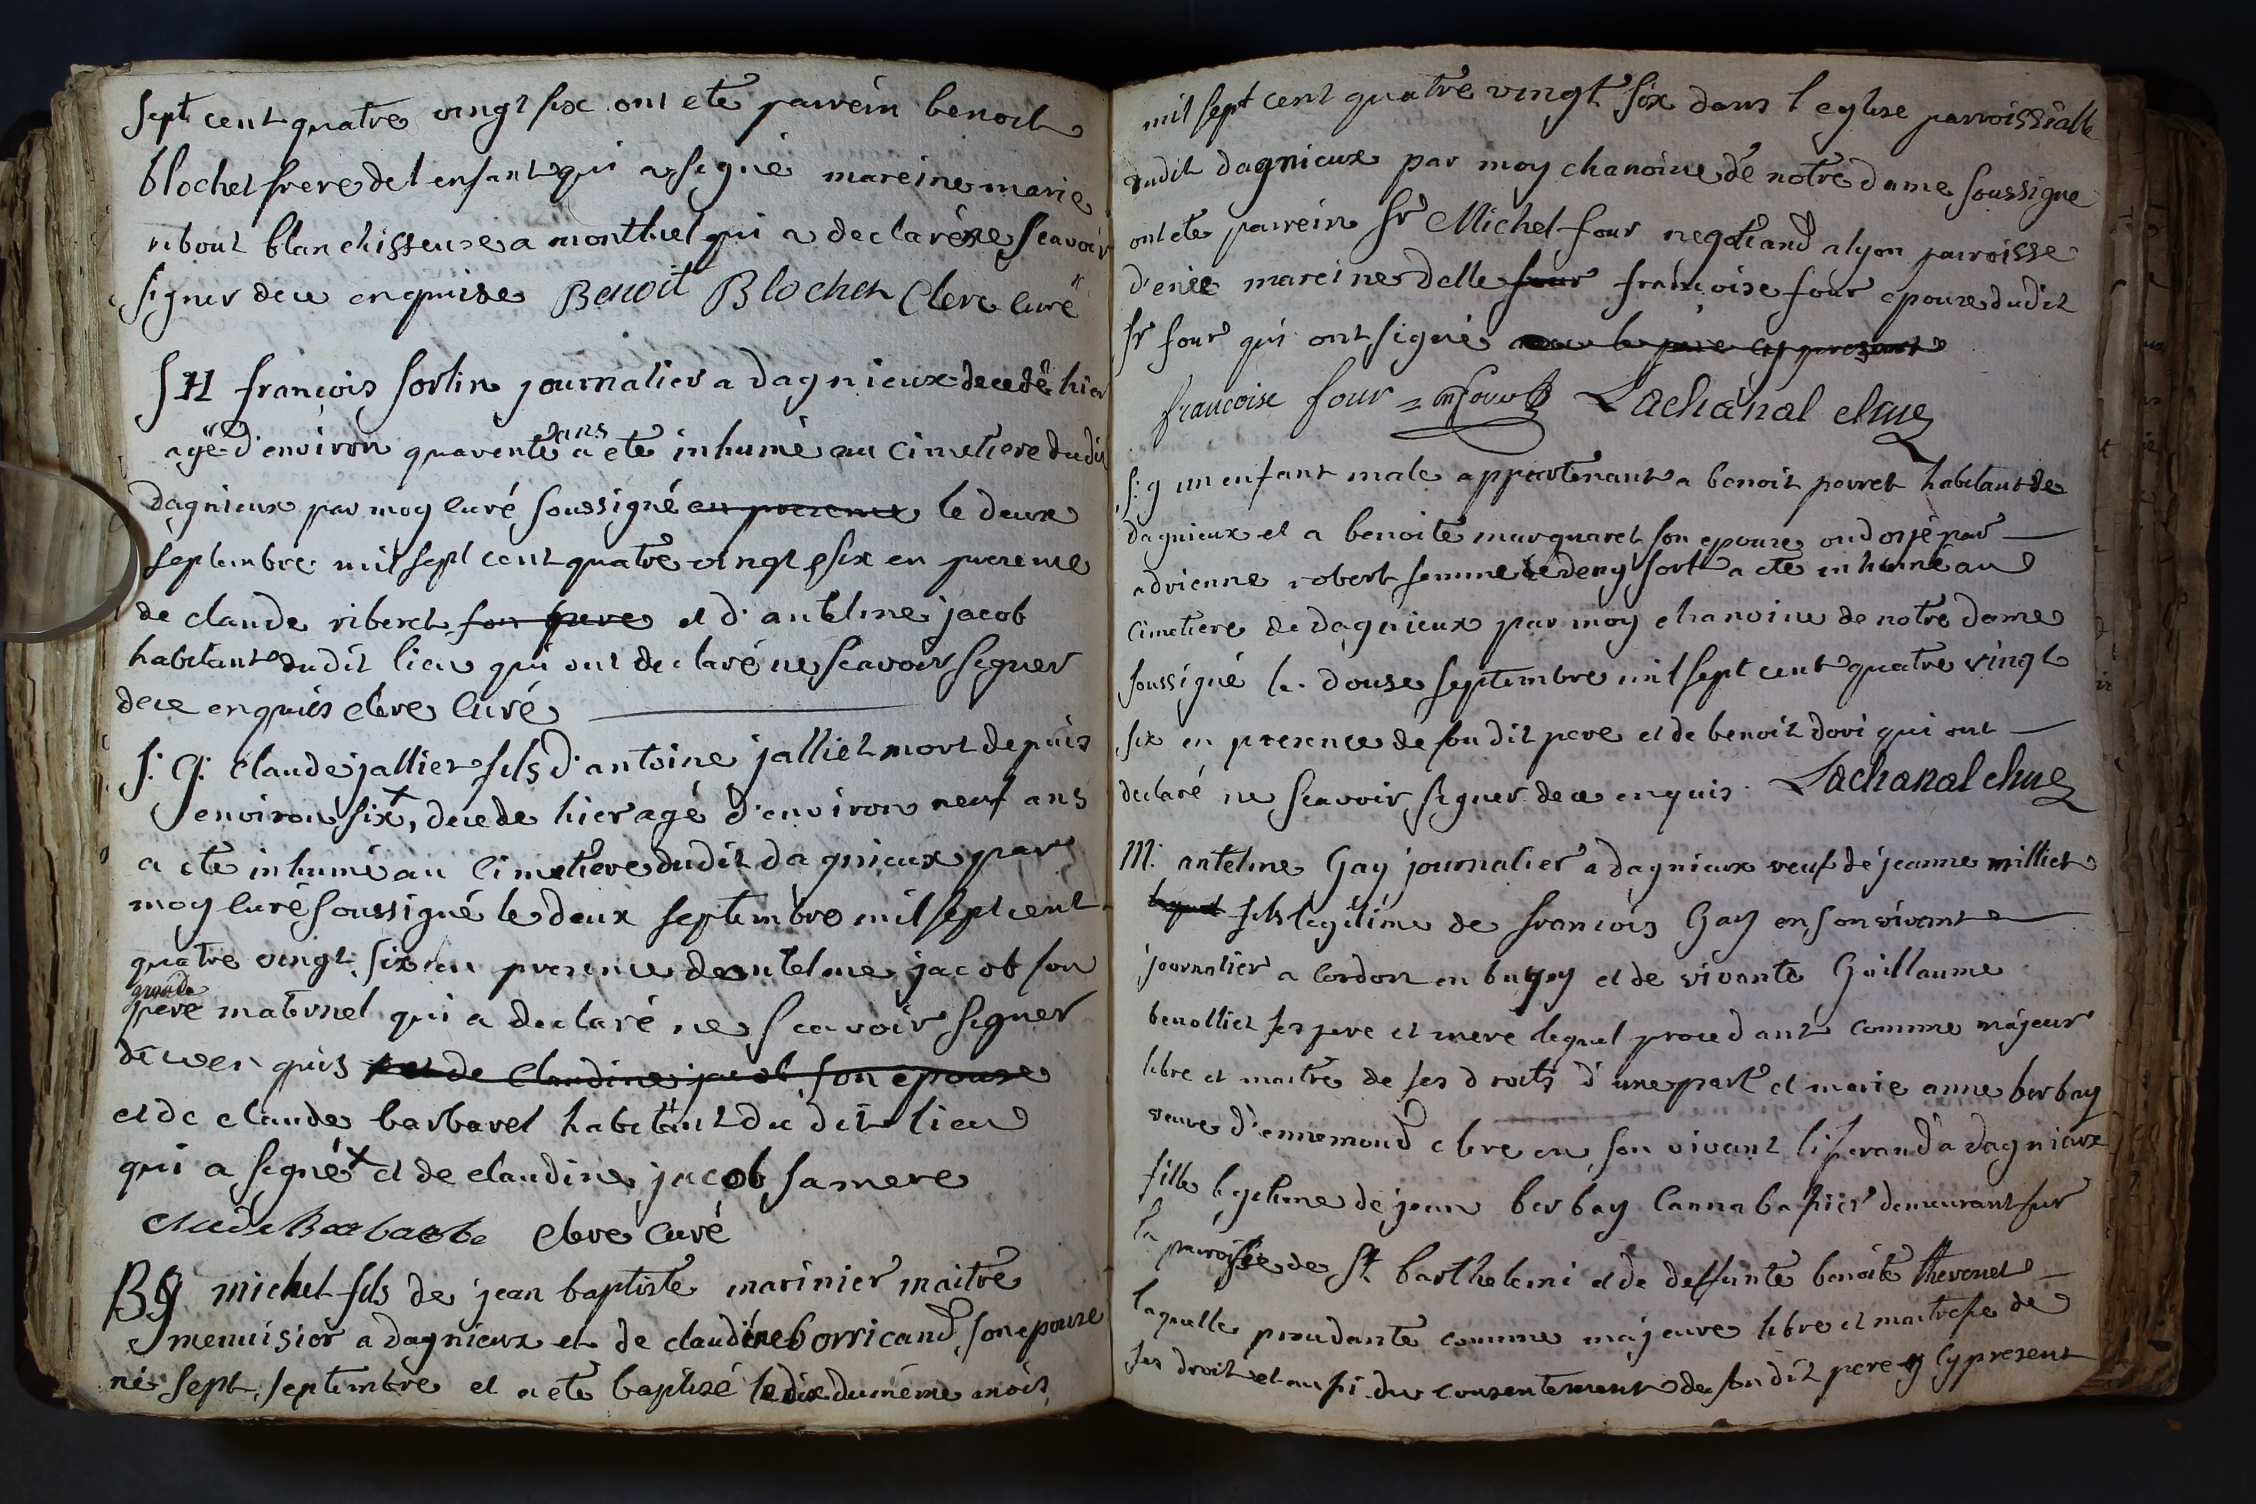 sept cent quatre vingt six ont ete parrein benoit
blochet frere de l enfant qui a signé mareine marie
ribout blanchisseuse a montluel qui a declaré ne scavoir
signer de ce enquise Benoit Blochet Clere curé
SH françois sorlin journalier a dagnieux decedé hier
agé d'environ quarente ans a eté inhumé au cimetiere dudit
dagnieux par moy curé soussigné en presence le deux
septembre mil sept cent quatre vingt six en presence
de claude riberet son pere et d'antelme jacob
habitants dudit lieu qui ont declaré ne scavoir signer
de ce enquis clere curé
S: G: Claude jalliet fils d'antoine jalliet mort depuis
environ six +, decede hier agé d'environ neuf ans
a ete inhumé au cimetiere dudit dagnieux par
moy curé soussigné le deux septembre mil sept cent
quatre vingt six en presence dantelme jacob son
grand
pere maternel qui a declaré ne scavoir signer
de ce enquis et de Claudine jacob son epouse
et de claude barbaret habitant du dit lieu
qui a signé + et de claudine jacob sa mere
Clere curé
BG michel fils de jean baptiste marinier maitre
menuisier a dagnieux et de claudine borricand son epouse
né sept septembre et a eté baptisé le dix du même mois
mil sept cent quatre vingt six dans l eglise parroissialle
dudit dagnieux par moy chanoine de notre dame soussigné
ont ete parrein Sr Michel four negotiand a lyon parroisse
d'enée mareine delle four françoise four epouse dudit
Sr four qui ont signé avec le pere cy present
francoise four = m four Lachanal chne
S: g un enfant male appartenant a benoit perret habitant de
dagnieux et a benoite marguaret son epouse ondoyé par
adrienne robert femme de deny fort a ete inhumé au
cimetiere de dagnieux par moy chanoine de notre dame
soussigné le douse septembre mil sept cent quatre vingt
six en presence de son dit pere et de benoit dori qui ont
declaré ne scavoir signer de ce enquis. Lachanal chne
M: antelme Gay journalier a dagnieux veuf de jeanne milliet
lequel fils legitime de francois Gay en son vivant
journalier a cordon en bugey et de vivante Guillaume
benolliet ses pere et mere lequel procedant comme majeur
libre et maitre de ses droits d'une part et marie anne berbay
veuve d'ennemond clere en son vivant tisserand a dagnieux
fille legitime de jean berbay cannabassier demeurant sur
la parroisse de St barthelemi et de deffunte benoite thevenet
laquelle procedante comme majeure libre et maitresse de
ses droit et aussi du consentement de son dit pere cy present